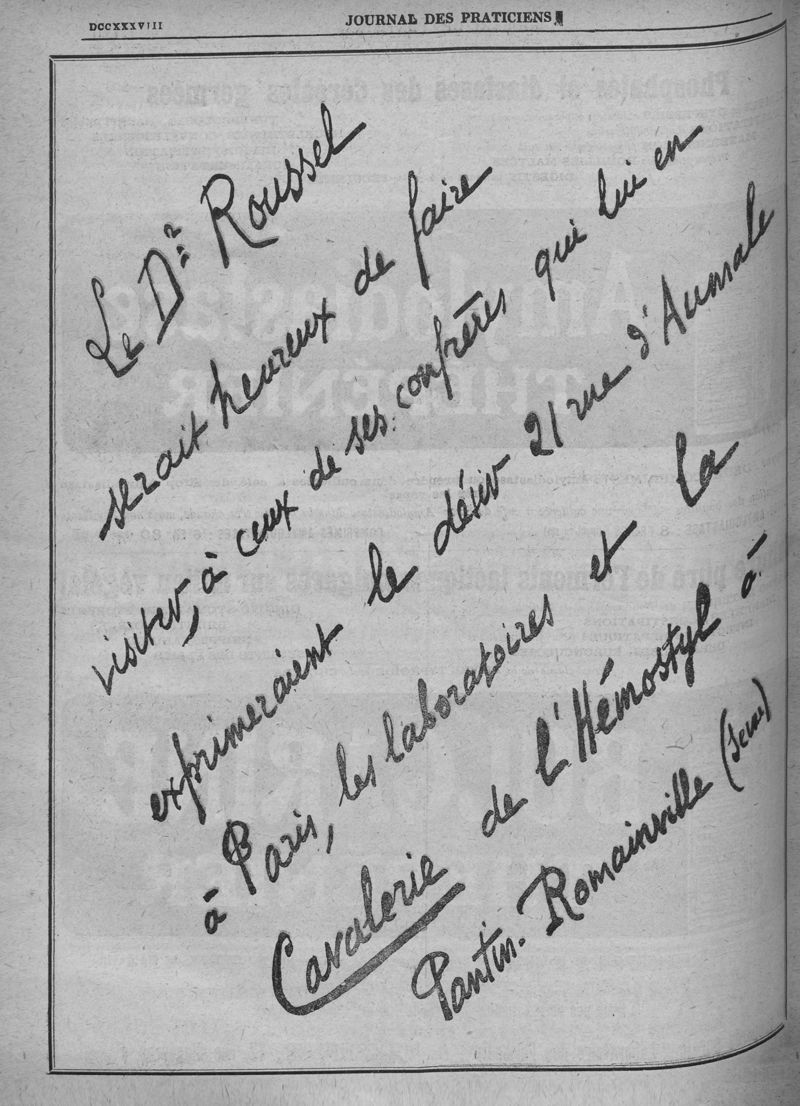 DCCXXXVIII
JOURNAL DES PRATICIENS
Le Dr Roussel
serait heureux de faire
visiter, à ceux de ses confrères qui lui en
exprimeraient le désir 21 rue d'Aumale
à Paris, les laboratoires et la
Cavalerie de l'Hémostyl à
Pantin-Romainville (Seine)